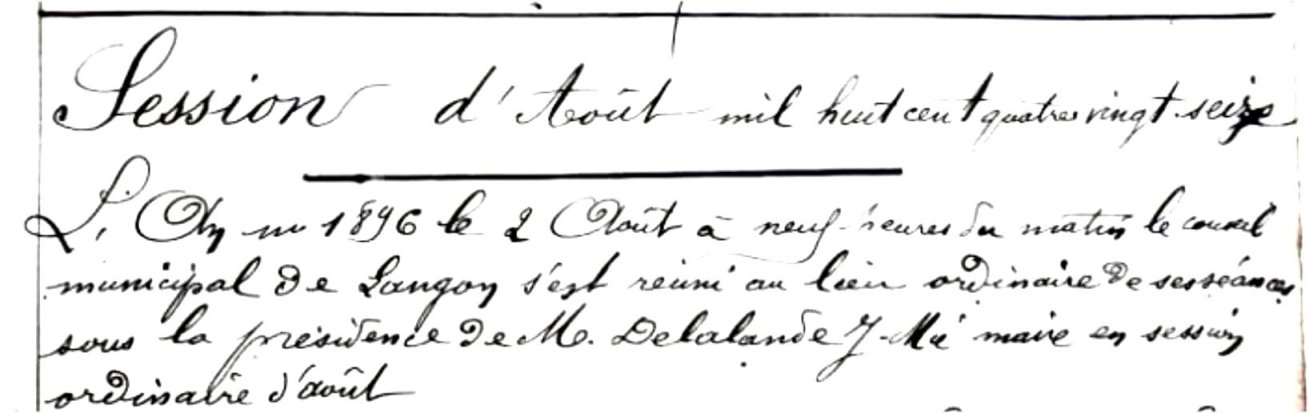 Session d'Août mil huit cent quatre vingt seize
L'An 1896 le 2 Août à neuf heures du matin le conseil
municipal de Langon s'est réuni au lieu ordinaire de ses séances
sous la présidence de M. Delalande J. Mie maire en session
ordinaire d'août